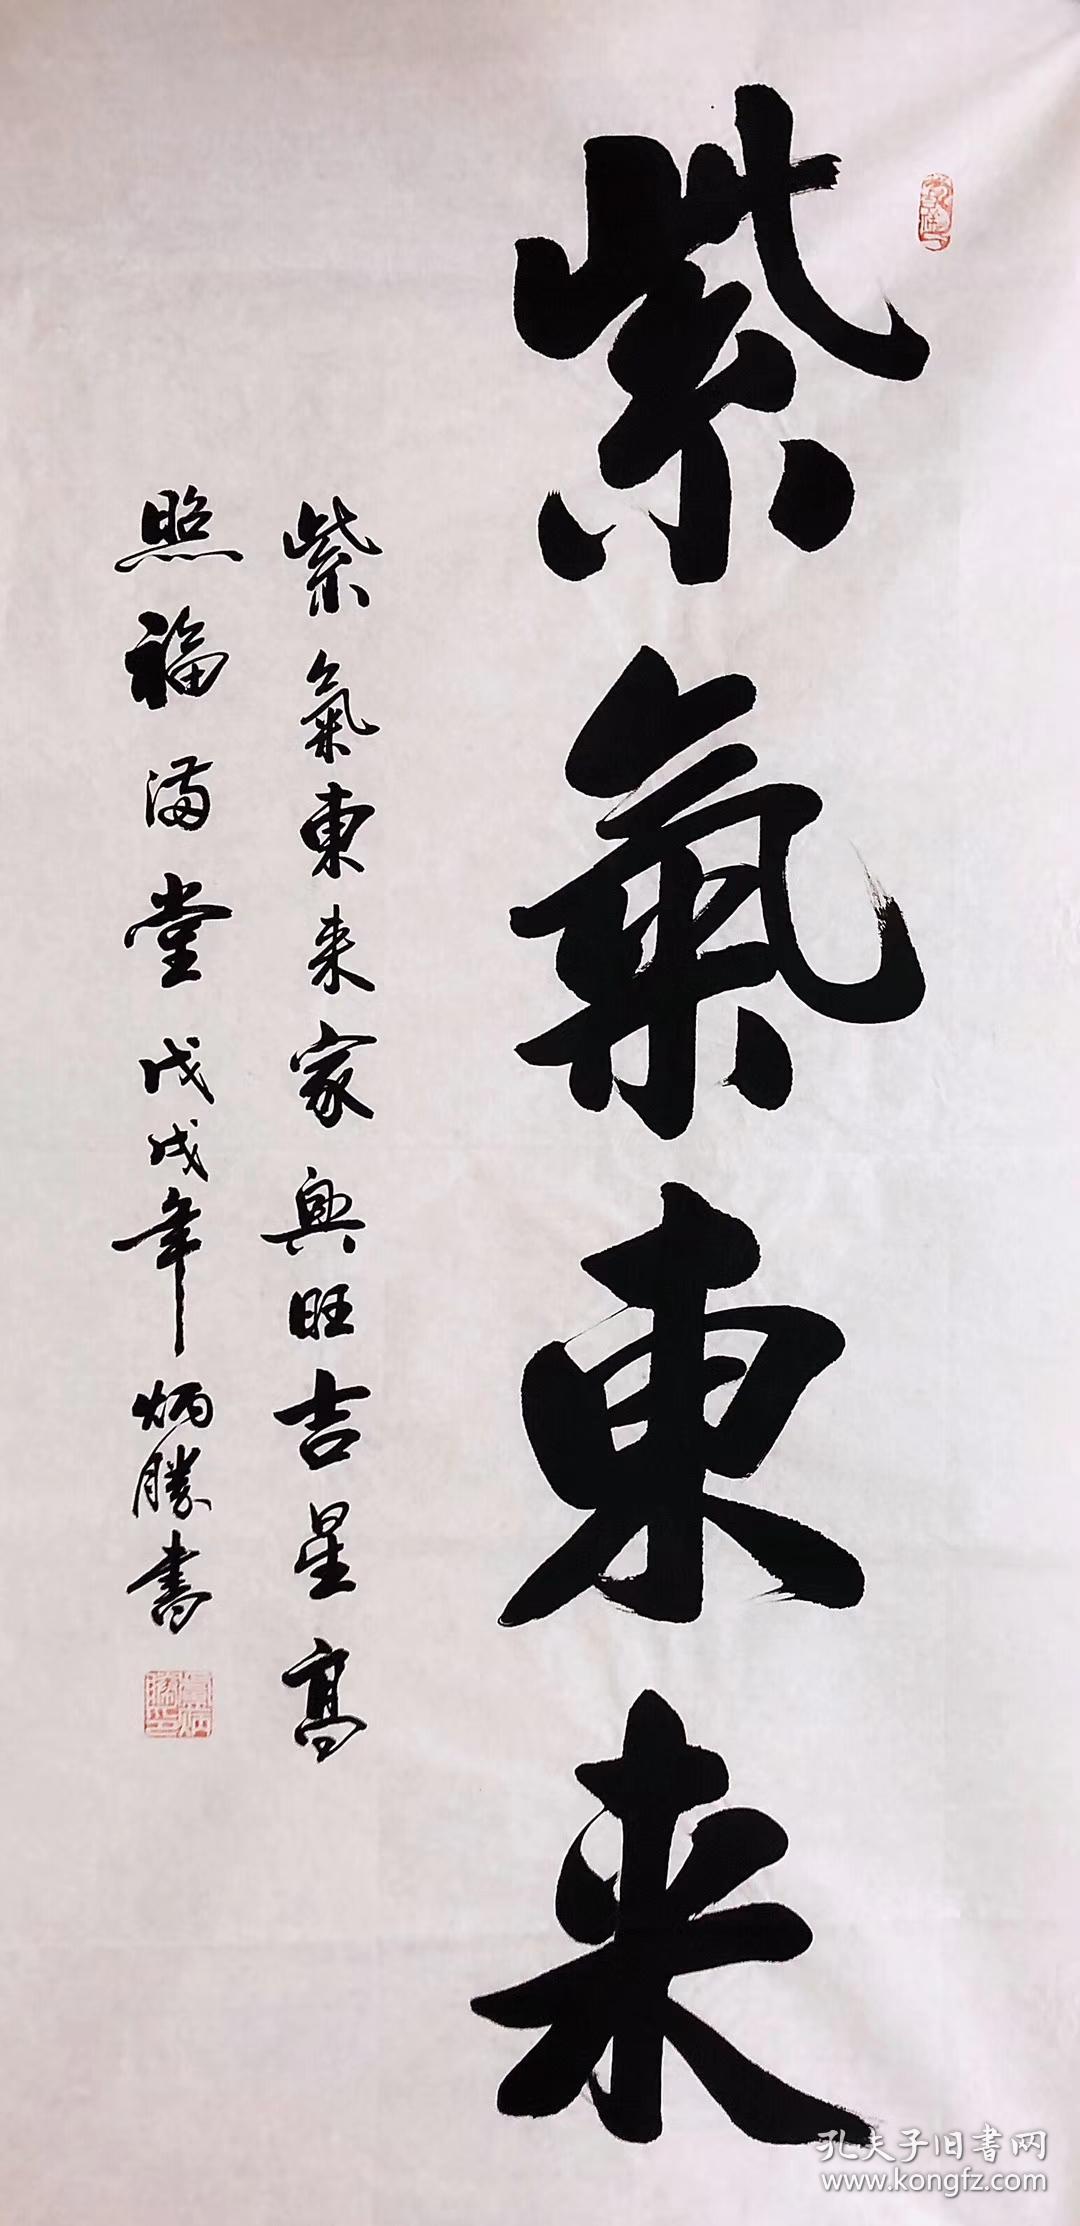 紫氣東来
紫氣東来家興旺吉星高
照福满堂戊戌年炳勝書
孔夫子旧書网
www.kongfz.com